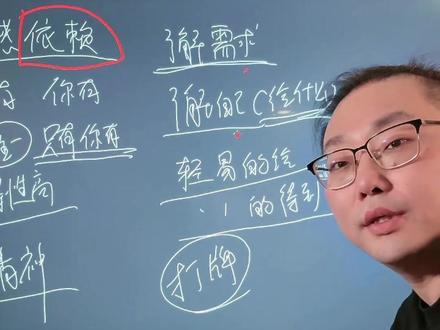 依赖
你有
只有你有
性高
精神
了解需求
了解自己(给什么)
轻易的给
的得到
打牌